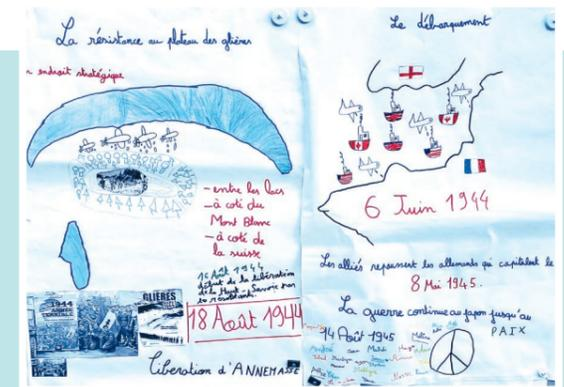 La résistance au plateau des glières
endroit stratégique
- entre les lacs
- à coté du
Mont Blanc
- à coté de
la suisse
Août 1944
début de la libération
de la Haute-Savoie par
les résistants.
1944
GLIÈRES
18 Août 1944
Libération d'ANNEMASSE
Le débarquement
6 Juin 1944
Les alliés repoussent les allemands qui capitulent le
8 Mai 1945.
La guerre continue au Japon jusqu'au
14 Août 1945
PAIX